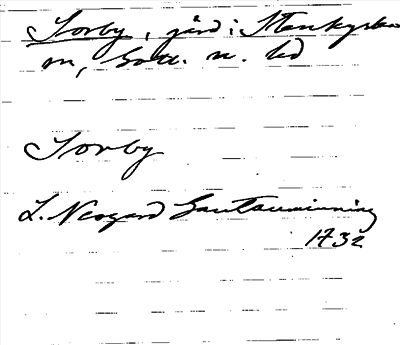 Sorby, gård i Stenkyrka
sn, Gotl. n. hd
Sorby
L. Neogard Gautauminning
1732